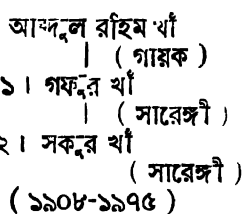 আব্দুল রহিম খাঁ
( গায়ক )
১। গফুর খাঁ
( সারেঙ্গী )
২। সকুর খাঁ
( সারেঙ্গী )
( ১৯০৮-১৯৭৫ )